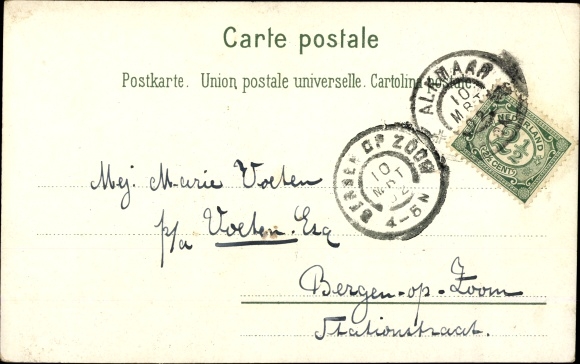 Carte postale
Postkarte. Union postale universelle. Cartolina postale.
ALKMAAR
10
MRT
NEDERLAND
2½
(2½ CENT)
BERGEN OP ZOOM
10
MRT
4-5N
Mej. Marie Voeten
p/a Voeten. Esq
Bergen-op-Zoom
Stationstraat.